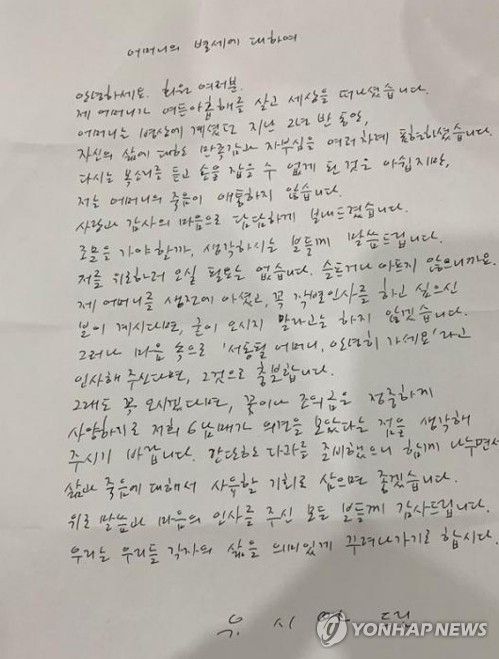 어머니의 별세에 대하여
안녕하세요. 회원 여러분.
제 어머니가 여든아홉해를 살고 세상을 떠나셨습니다.
어머니는 병상에 계셨던 지난 2년 반 동안,
자신의 삶에 대한 만족감과 자부심을 여러차례 표현하셨습니다.
다시는 목소리를 듣고 손을 잡을 수 없게 된 것은 아쉽지만,
저는 어머니의 죽음이 애통하지 않습니다.
사랑과 감사의 마음으로 담담하게 보내드렸습니다.
조문을 가야할까, 생각하시는 분들께 말씀드립니다.
저를 위로하러 오실 필요는 없습니다. 슬프거나 아프지 않으니까요.
제 어머니를 생전에 아셨고, 꼭 작별인사를 하고 싶으신
분이 계시다면, 굳이 오시지 말라고는 하지 않겠습니다.
그러나 마음 속으로 '서동필 어머니, 안녕히 가세요'라고
인사해 주신다면, 그것으로 충분합니다.
그래도 꼭 오시겠다면, 꽃이나 조의금은 정중하게
사양하기로 저희 6남매가 의견을 모았다는 점을 생각해
주시기 바랍니다. 간단한 다과를 준비했으니 함께 나누면서
삶과 죽음에 대해서 사유할 기회로 삼으면 좋겠습니다.
위로 말씀과 마음의 인사를 주신 모든 분들께 감사드립니다.
우리는 우리들 각자의 삶을 의미있게 꾸려나가기로 합시다.
유 시 민 드림
YONHAP NEWS